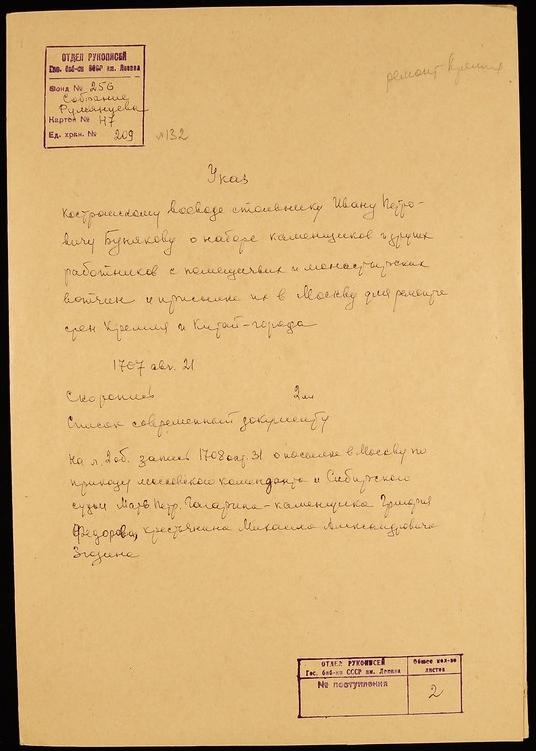 ОТДЕЛ РУКОПИСЕЙ
Гос. биб-ки СССР им. Ленина
Фонд № 256
Собрание
Румянцева
Картон № 47
Ед. хран. № 209
№132
ремонт Кремля
Указ
костромскому воеводе стольнику Ивану Петро-
вичу Бунякову о наборе каменщиков и других
работников с помещичьих и монастырских
вотчин и присылке их в Москву для ремонта
стен Кремля и Китай-города
1707 авг. 21
Скоропись 2 лл
Список современный документу
На л. 2 об. запись 1708 окт. 31 о посылке в Москву по
приказу московского коменданта и Сибирского
судьи Матв. Петр. Гагарина - каменщика Григория
Федорова, крестьянина Михаила Александровича
ОТДЕЛ РУКОПИСЕЙ
Гос. биб-ки СССР им. Ленина
№ поступления
Общее кол-во
листов
2